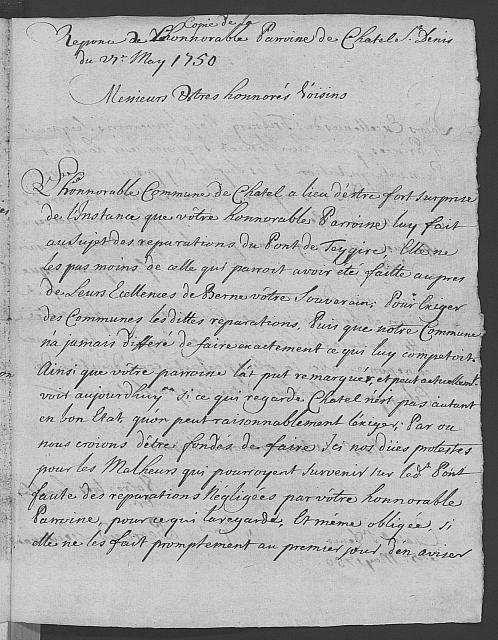 Copie de la
Reponce de L'honnorable Paroine de Chatel St. Denis
du 21e May 1750
Messieurs & tres honnorés Voisins
L'honnorable Commune de Chatel a lieu d'éstre fort surprise
de L'instance que vôtre honnorable Parroine luy fait
au Sujet des reparations du Pont de Feygire, Elle ne
les pas moins de celle qui parroit avoir eté faitte aupres
de Leurs Excellences de Berne vôtre Souverain; Pour Exiger
des Communes les dittes réparations. Puis que nôtre Commune
n'a jamais differé de faire exactement ce qui luy competoit.
Ainsi que vôtre paroine la't put remarquer, et peut actuellement
voir aujourdhuy, si ce qui regarde Chatel n'est pas autant
en bon Etat, qu'on peut raisonnablement L'exiger; Par ou
nous croions d'être fondés de faire Ici nos dües protestes
pour les Malheurs qui pourroyent survenir sur ledt Pont
faute des réparations Negligées par vôtre honnorable
Paroine, pour ce qui la regarde, Et méme obligée, si
elle ne les fait promptement au premier jour, d'en aviser